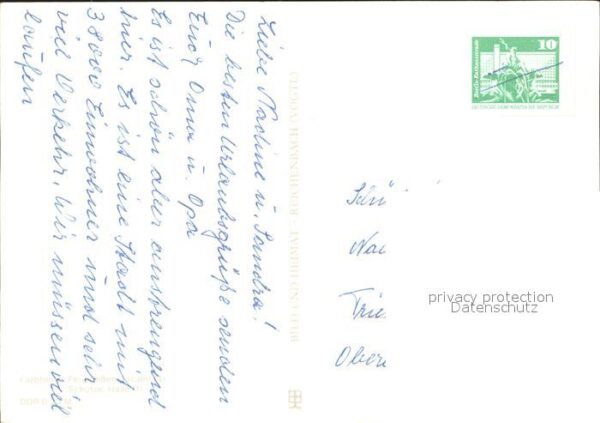 Liebe Nadine u. Sandra!
Die besten Urlaubsgrüße senden
Euch Oma u. Opa
Es ist schön aber anstrengend
hier. Es ist eine Stadt mit
38000 Einwohner und sehr
viel Verkehr. Wir müssen viel
laufen
BILD UND HEIMAT REICHENBACH
10
DEUTSCHE DEMOKRATISCHE REPUBLIK
Schü
Nai
Trie
Ober
privacy protection
Datenschutz